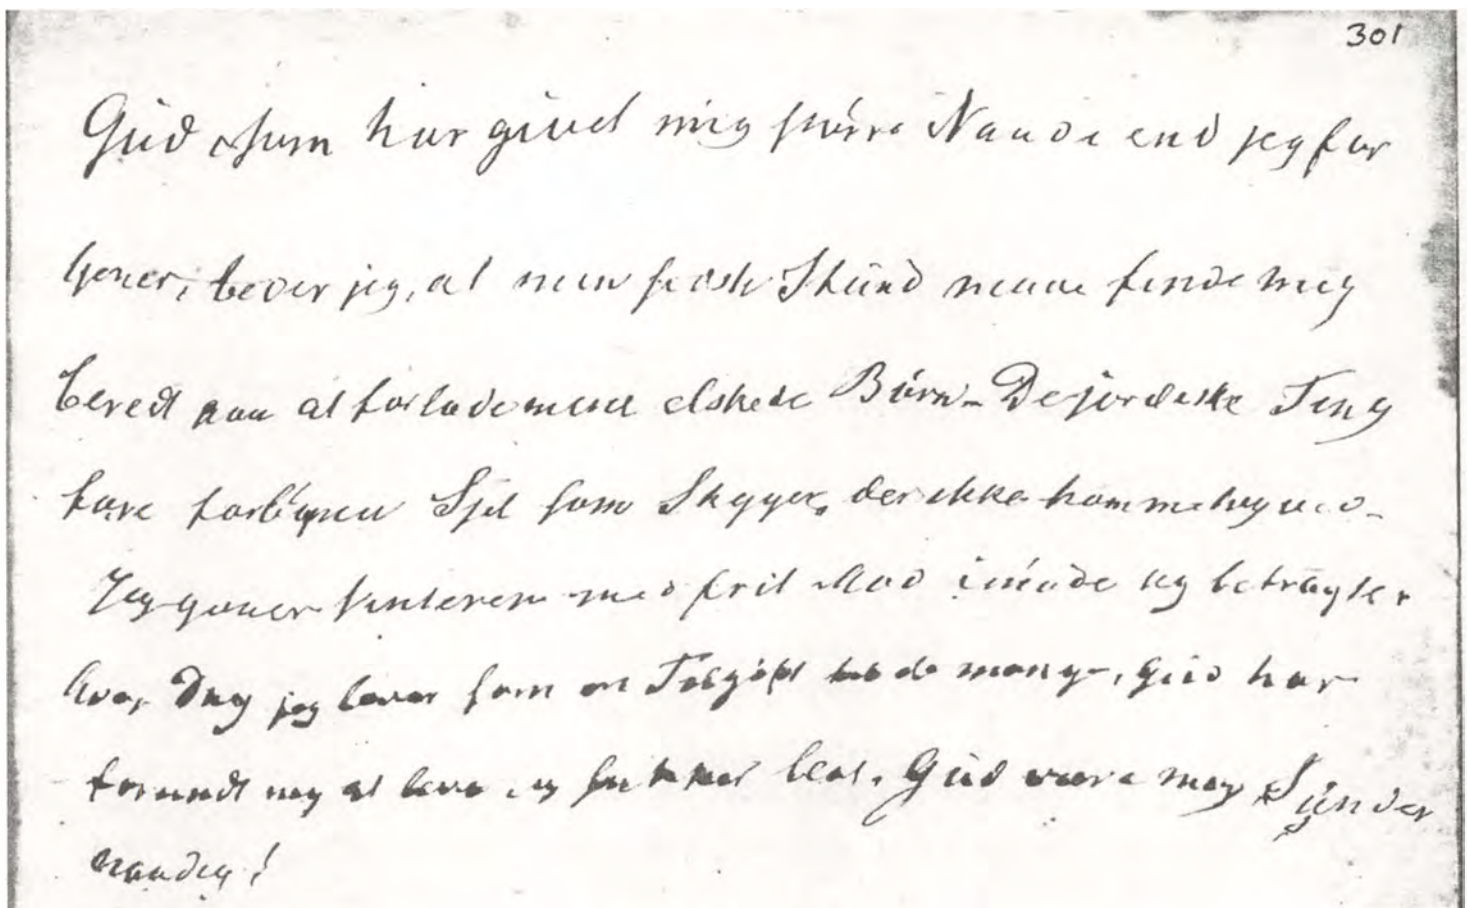 301
Gud som har givet mig större Naade end jeg for
tjener, beder jeg, at min sidste Stund maae finde mig
beredt paa at forlade mine elskede Börn - De jordiske Ting
fare forbi min Sjel som Skygger, der ikke komme igien -
Jeg gaaer Vinteren med frit Mod imöde og betragter
hver Dag jeg lever som en Tilgift til de mange, Gud har
forundt mig at leve og saa let. Gud være mig Synder
naadig!